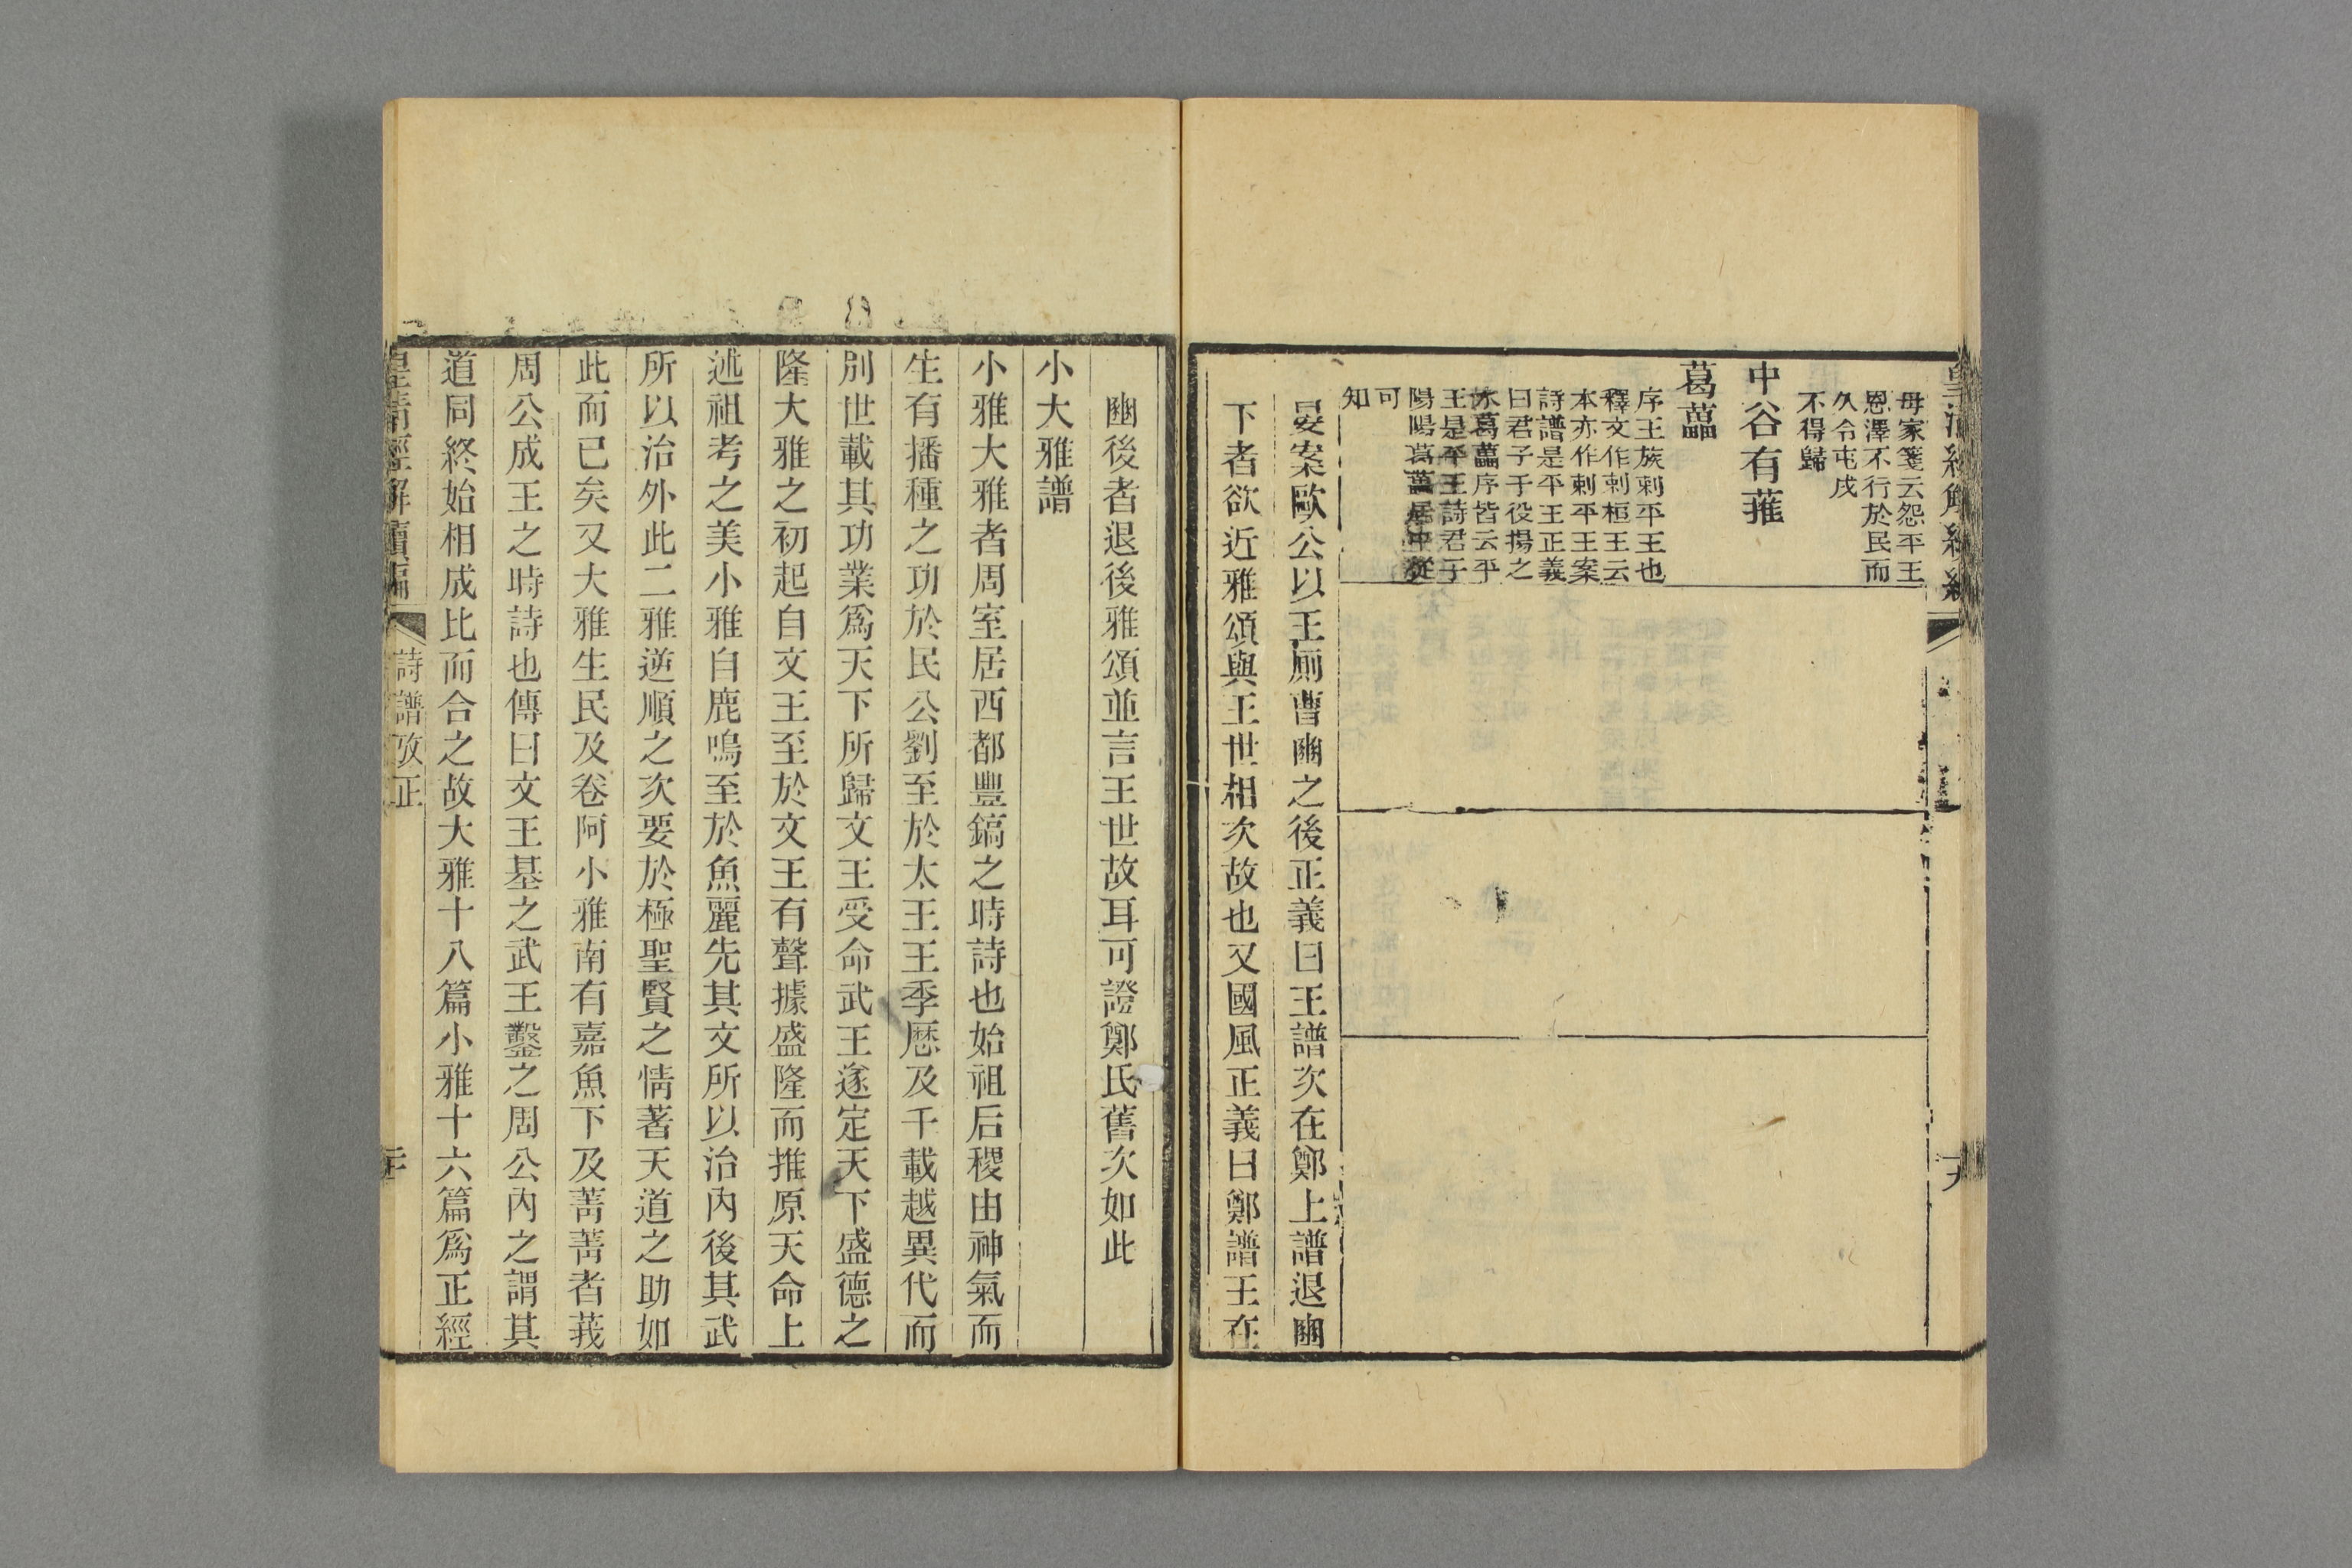 母家箋云怨平王
恩澤不行於民而
久令屯戍
不得歸
中谷有蓷
葛藟
序王族刺平王也
釋文作刺桓王云
本亦作刺平王案
詩譜是平王正義
曰君子于役揚之
水葛藟序皆云平
王是平王詩君子
陽陽葛藟居中從
可
知
晏案歐公以王厠曹豳之後正義曰王譜次在鄭上譜退豳
下者欲近雅頌與王世相次故也又國風正義曰鄭譜王在
豳後者退後雅頌並言王世故耳可證鄭氏舊次如此
小大雅譜
小雅大雅者周室居西都豐鎬之時詩也始祖后稷由神氣而
生有播種之功於民公劉至於太王王季歷及千載越異代而
別世載其功業爲天下所歸文王受命武王遂定天下盛德之
隆大雅之初起自文王至於文王有聲據盛隆而推原天命上
述祖考之美小雅自鹿鳴至於魚麗先其文所以治內後其武
所以治外此二雅逆順之次要於極聖賢之情著天道之助如
此而已矣又大雅生民及卷阿小雅南有嘉魚下及菁菁者莪
周公成王之時詩也傳曰文王基之武王鑿之周公內之謂其
道同終始相成比而合之故大雅十八篇小雅十六篇爲正經
皇清經解續編
詩譜攷正